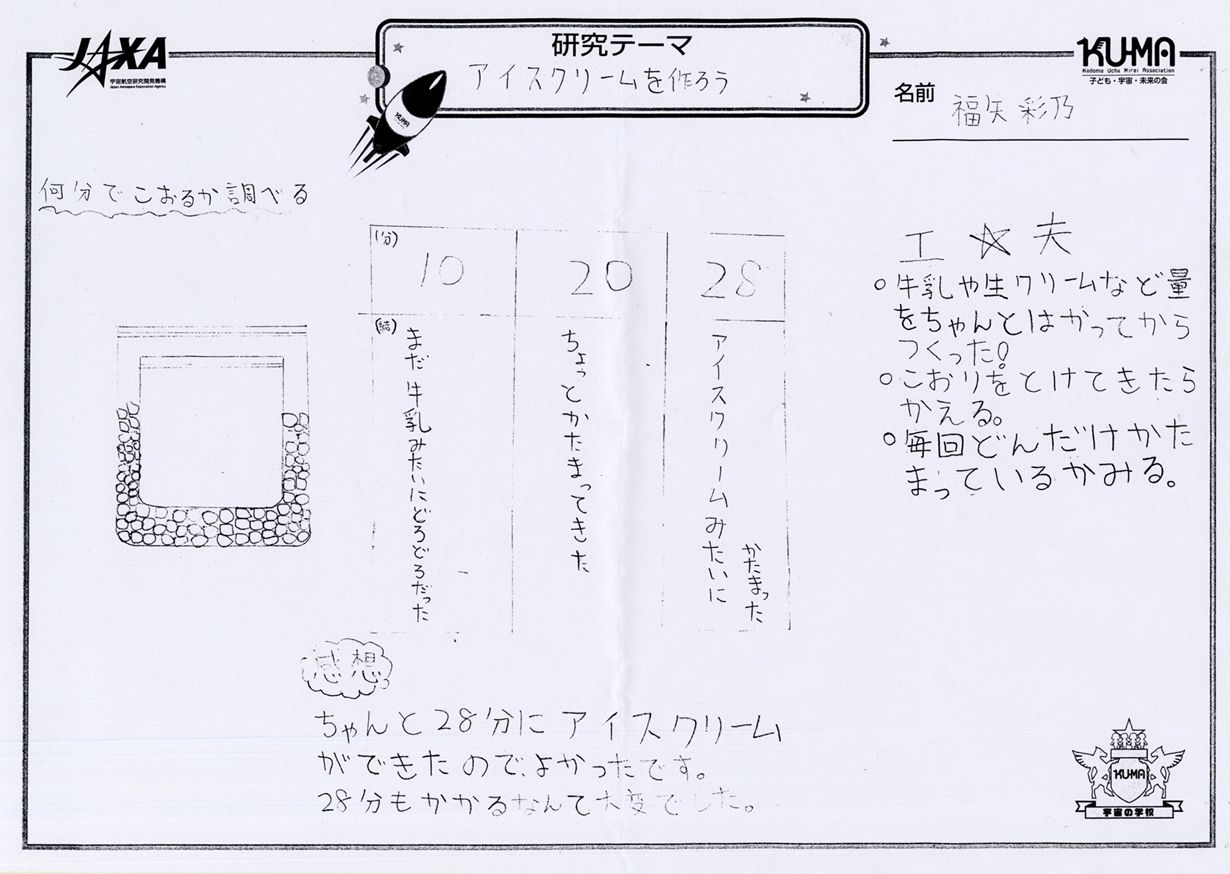 JAXA
宇宙航空研究開発機構
Japan Aerospace Exploration Agency
研究テーマ
アイスクリームを作ろう
KUMA
KU-MA
Kodomo Uchu Mirai Association
子ども・宇宙・未来の会
名前
福矢 彩乃
何分でこおるか調べる
(分)
10
20
28
(結)
まだ牛乳みたいにどろどろだった
ちょっとかたまってきた
アイスクリームみたいに
かたまった
工☆夫
○牛乳や生クリームなど量
をちゃんとはかってから
つくった!
○こおりをとけてきたら
かえる。
○毎回どんだけかた
まっているかみる。
感想
ちゃんと28分にアイスクリーム
ができたので、よかったです。
28分もかかるなんて大変でした。
KU-MA
宇宙の学校